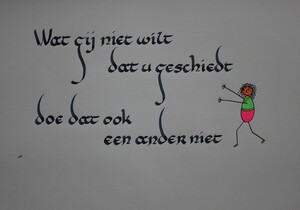 Wat gij niet wilt
dat u geschiedt
doe dat ook
een ander niet